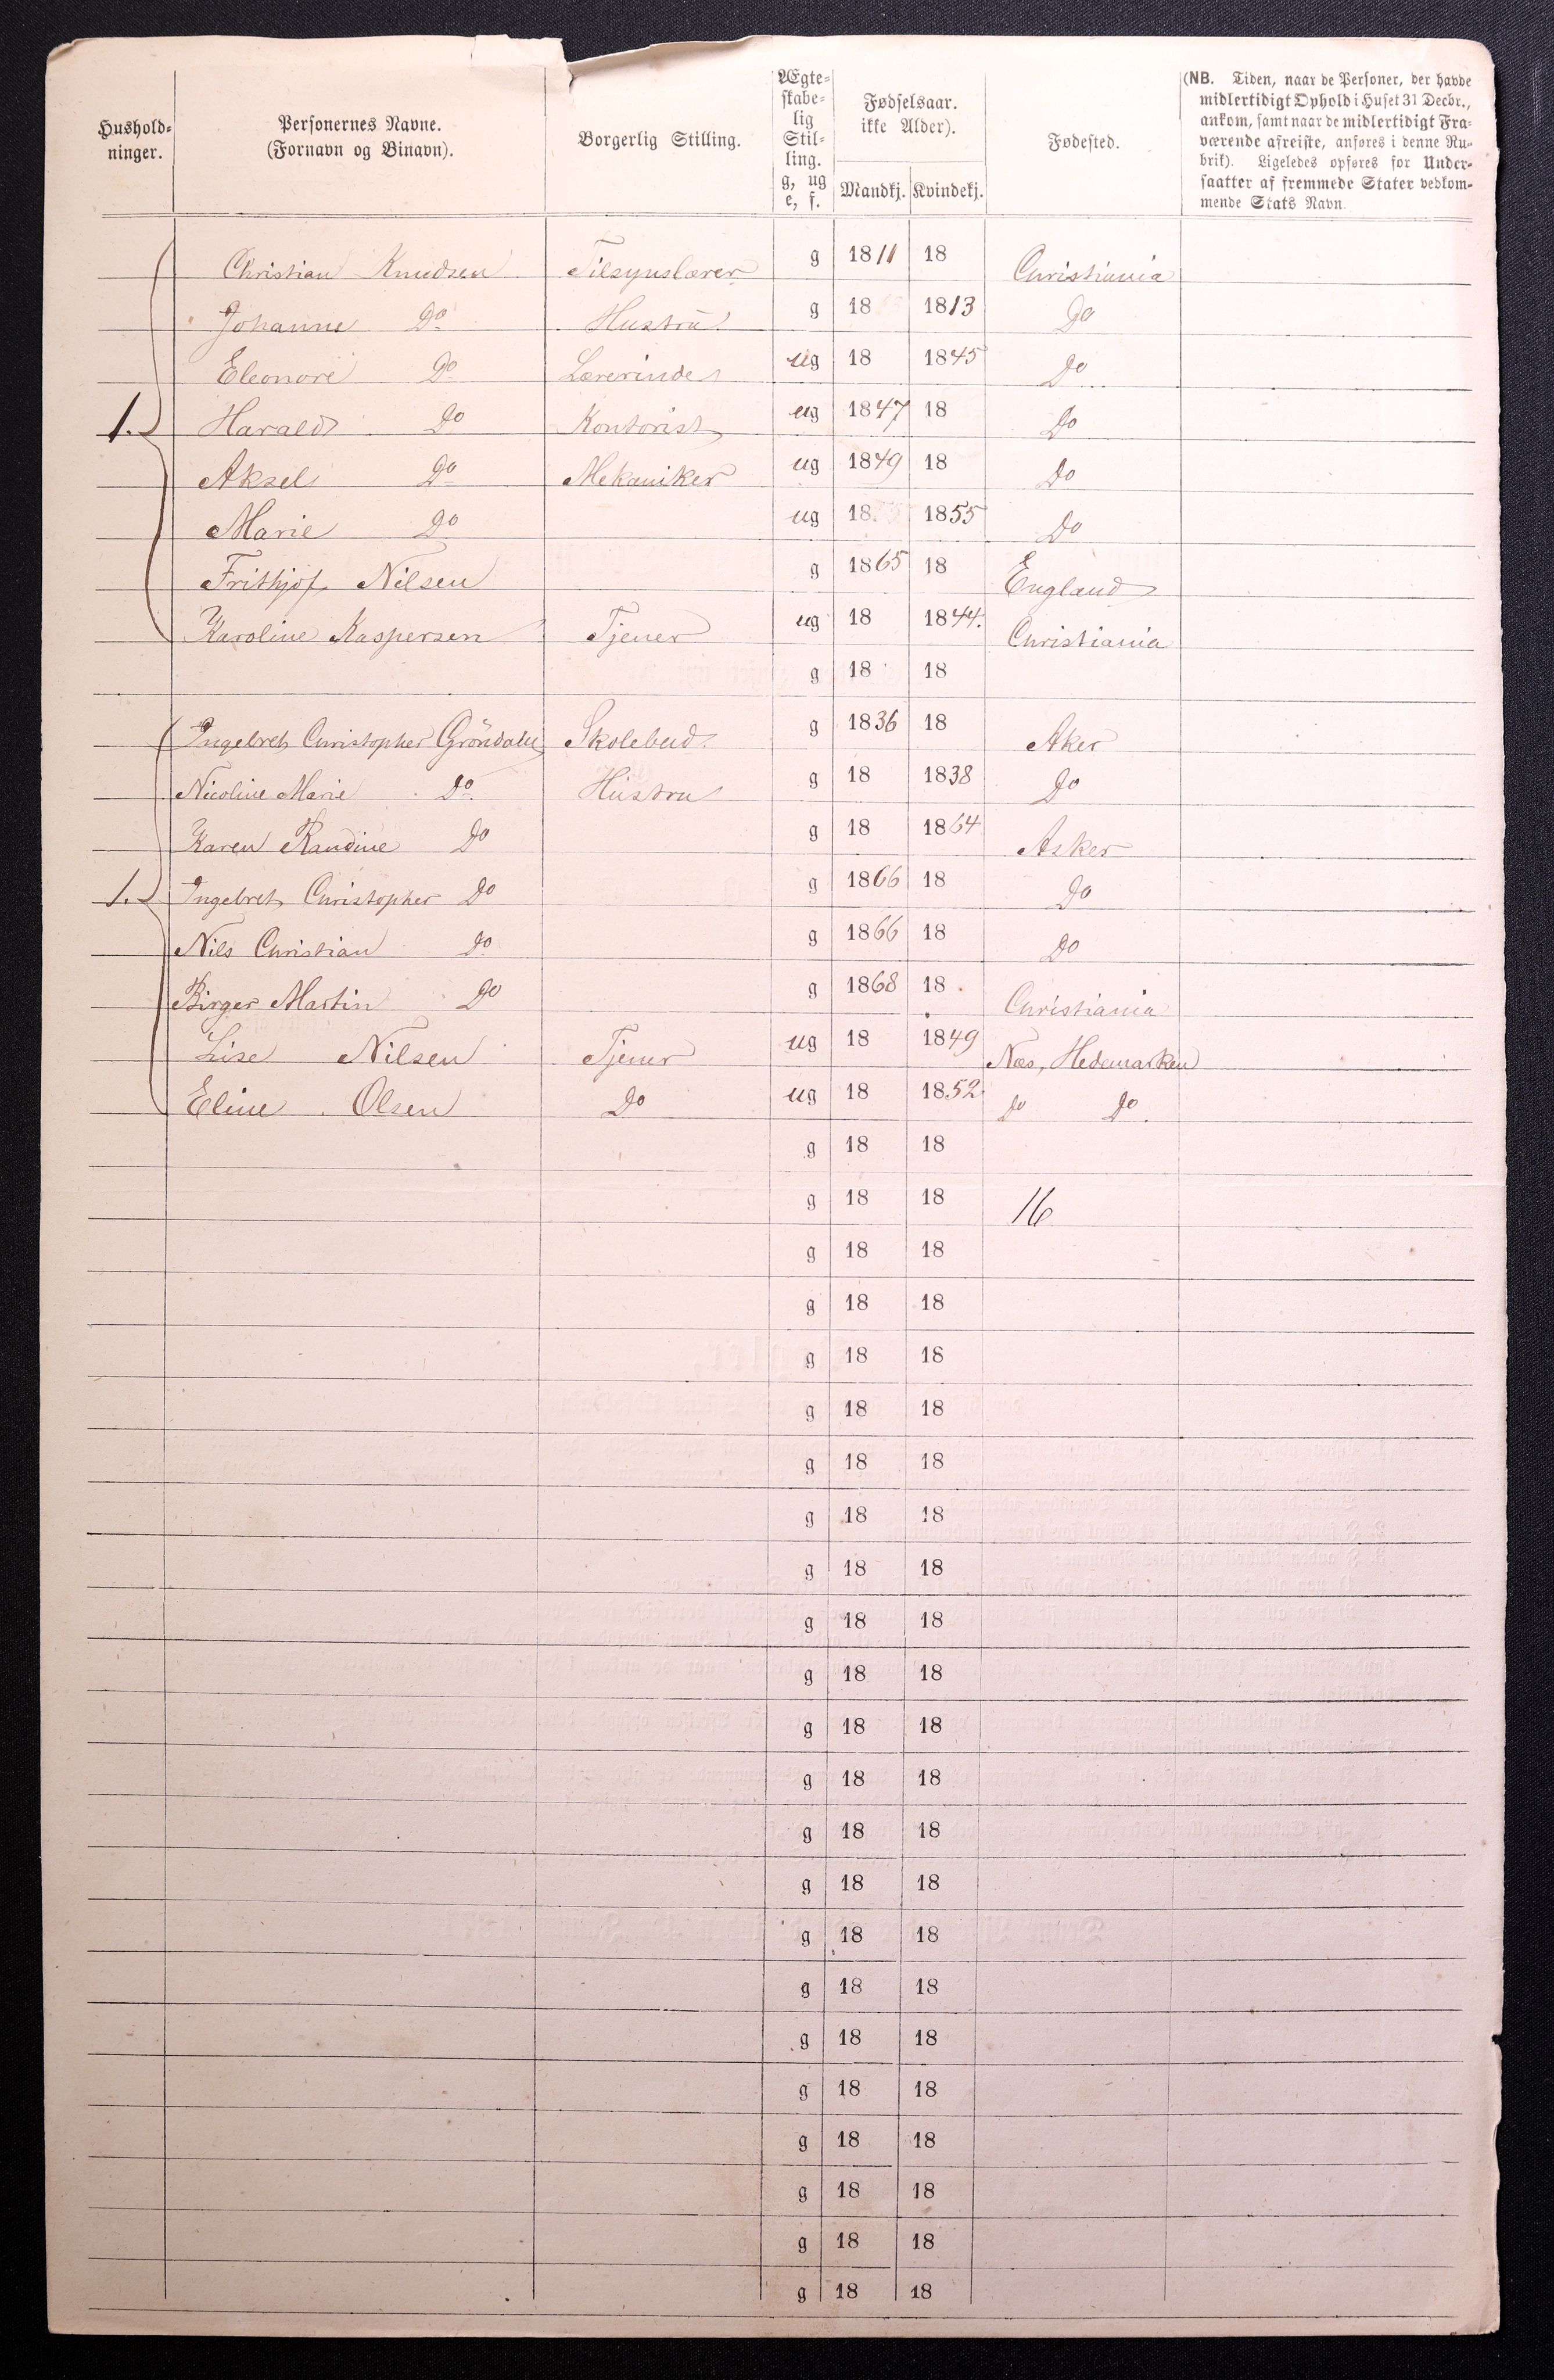 Hushold-
ninger.
Personernes Navne.
(Fornavn og Binavn).
Borgerlig Stilling.
Ægte-
skabe-
lig
Stil-
ling.
g, ug
e, f.
Fødselsaar.
ikke Alder).
Mandkj. Kvindekj.
Fødested.
(NB. Tiden, naar de Personer, der havde
midlertidigt Ophold i Huset 31 Decbr.,
ankom, samt naar de midlertidigt Fra-
værende afreiste, anføres i denne Ru-
brik). Ligeledes opføres for Under-
saatter af fremmede Stater vedkom-
mende Stats Navn.
Christian Knudsen Tilsynslærer g 1811 18 Christiania
Johanne Do Hustru g 18 1813 Do
Eleonore Do Lærerinde ug 18 1845 Do
1. Harald Do Kontorist ug 1847 18 Do
Aksel Do Mekaniker ug 1849 18 Do
Marie Do ug 18 1855 Do
Frithjof Nilsen g 1865 18 England
Karoline Kaspersen Tjener ug 18 1844. Christiania
g 18 18
Ingebret Christopher Gröndahl Skolebud. g 1836 18 Aker
Nicoline Marie Do. Hustru g 18 1838 Do
Karen Randine Do g 18 1864 Asker
1. Ingebret Christopher Do g 1866 18 Do
Nils Christian Do g 1866 18 Do
Birger Martin Do g 1868 18 Christiania
Lise Nilsen Tjener ug 18 1849 Næs, Hedemarken
Eline Olsen Do ug 18 1852 Do Do.
g 18 18
g 18 18 16
g 18 18
g 18 18
g 18 18
g 18 18
g 18 18
g 18 18
g 18 18
g 18 18
g 18 18
g 18 18
g 18 18
g 18 18
g 18 18
g 18 18
g 18 18
g 18 18
g 18 18
g 18 18
g 18 18
g 18 18
g 18 18